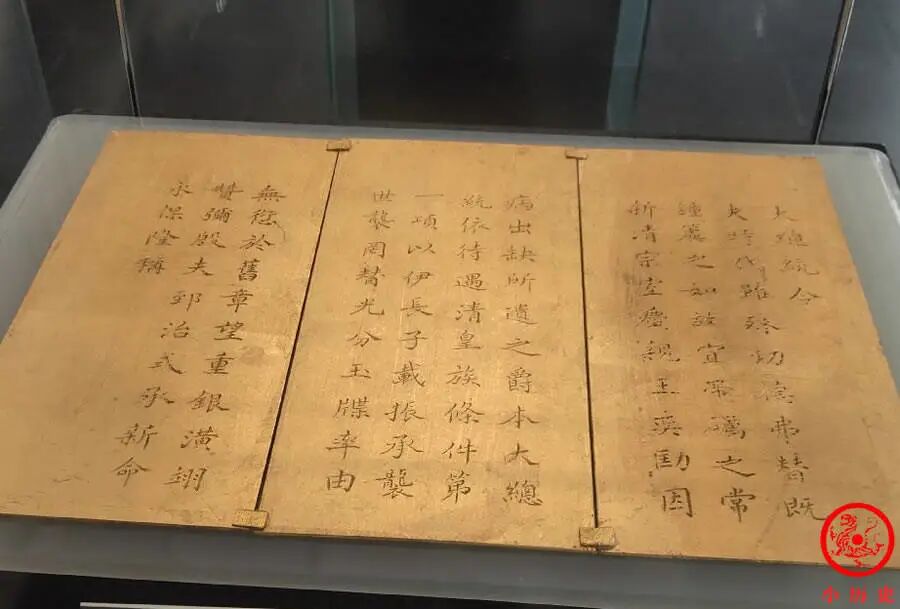 大總統令
夫時代雖殊功德弗替既
鍾簴之如故宜帶礪之常
新清宗室慶親王奕劻因
病出缺所遺之爵本大總
統依待遇清皇族條件第
一項以伊長子載振承襲
世襲罔替光分玉牒率由
無愆於舊章望重銀潢翊
贊彌殷夫郅治式承新命
永保隆稱
小历史